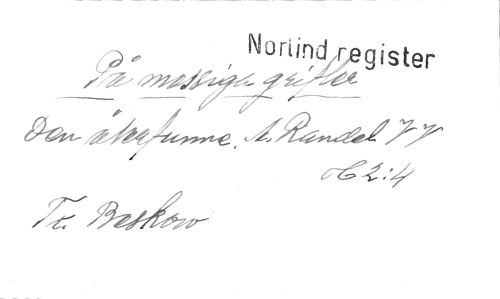 Norlind register
På mossiga grifter
Den återfunne. A. Randel VV
HC 2:4
Fr. Beskow